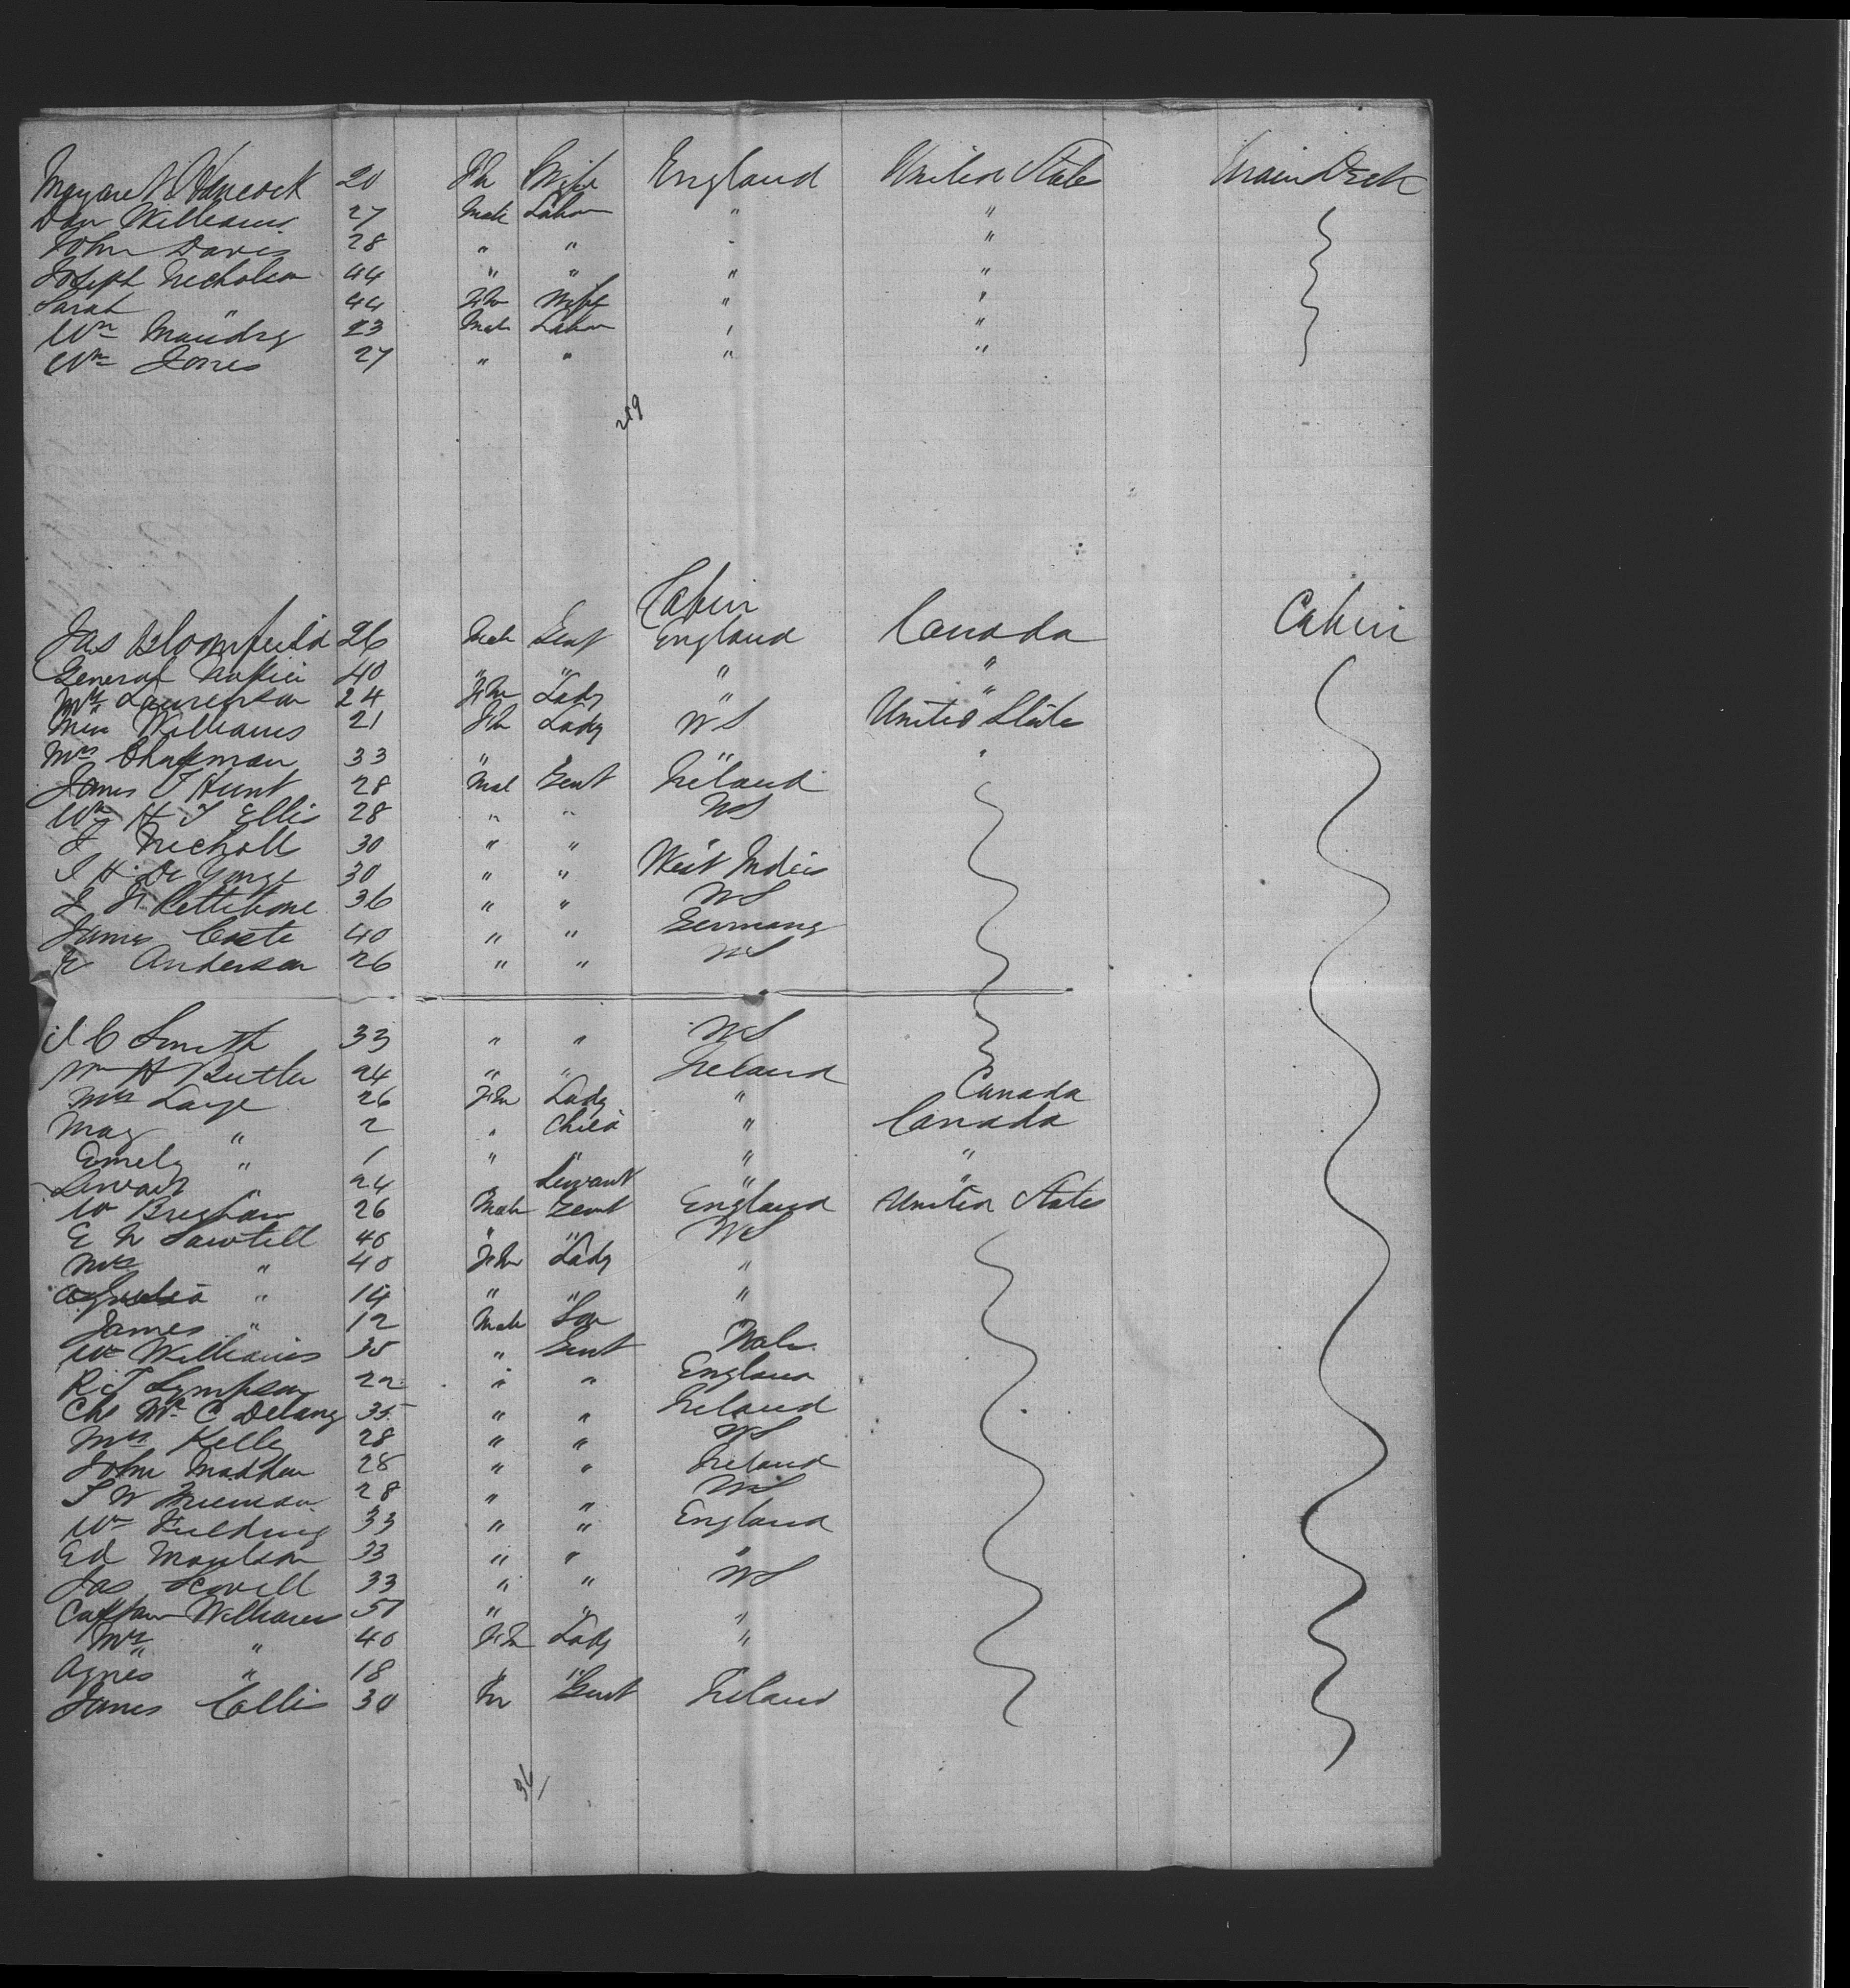 Margaret Hancock 20 Fm Wife England United State Main Deck
Dan Williams 27 Male Labor " "
John Davis 28 " " " "
Joseph Nicholson 44 " " " "
Sarah " 44 Fm Wife " "
Wm 23 Male Labor " "
Wm Jones 27 " " " "
289
Cabin
Jas Bloomfield 26 Male Gent England Canada Cabin
General Napier 40 " " " "
Mrs Laurenson 24 Fm Lady " "
Miss Williams 21 Fm Lady US United State
Mrs Chapman 33 " " "
James Hunt 28 Mal Gent Ireland
Wm H T Ellis 28 " " US
J Nicholl 30 " " "
J H De Yonge 30 " " West Indies
J F Pettibone 36 " " US
James Coste 40 " " Germany
E Anderson 26 " " US
J C Smith 33 " " US
Wm H Butler 24 " " Ireland
Mrs Large 26 Fm Lady " Canada
May " 2 " Child " Canada
Emely " 1 " " " "
Servant " 24 " Servant " "
W Brigham 26 Male Gent England United States
E N Sawtell 40 " " US
Mrs " 40 Fm Lady "
" 14 " " "
James " 12 Male Son
Wm Williams 35 " Gent Wales
R T Sympson 22 " " England
Chs Mc C Delany 35 " " Ireland
Mrs Kelly 28 " " US
John Madden 28 " " Ireland
T W Freeman 28 " " US
Wm Fielding 33 " " England
Ed Moulson 33 " " "
Jas Scovell 33 " " US
Captain Williams 51 " " "
Mrs " 40 Fm Lady "
Agnes " 18 " "
James Collis 30 M Gent Ireland
34